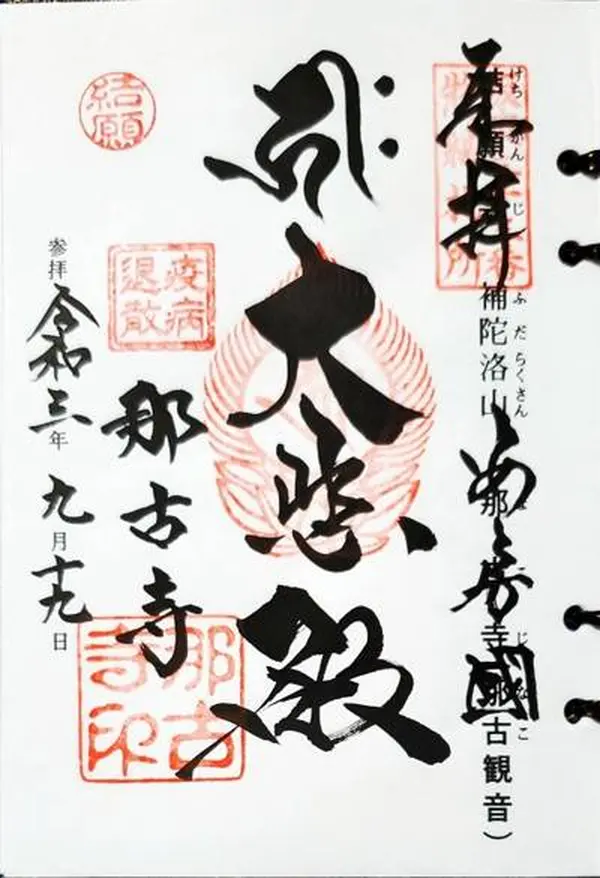 奉拝
國
けちがんじ ふだらくさん
結願 補陀洛山 那 寺 那古観音）
大悲殿
疫病
退散
結願
那古寺
那古
寺印
参拝 令和三年 九月十九日